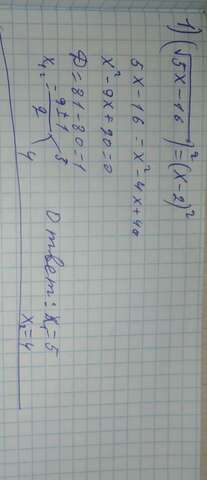 1) (√5x-16)²=(x-2)²
5x-16=x²-4x+4
x²-9x+20=0
D=81-80=1
x₁,₂=9±1/2 5 4
Ответ: x₁=5
x₂=4